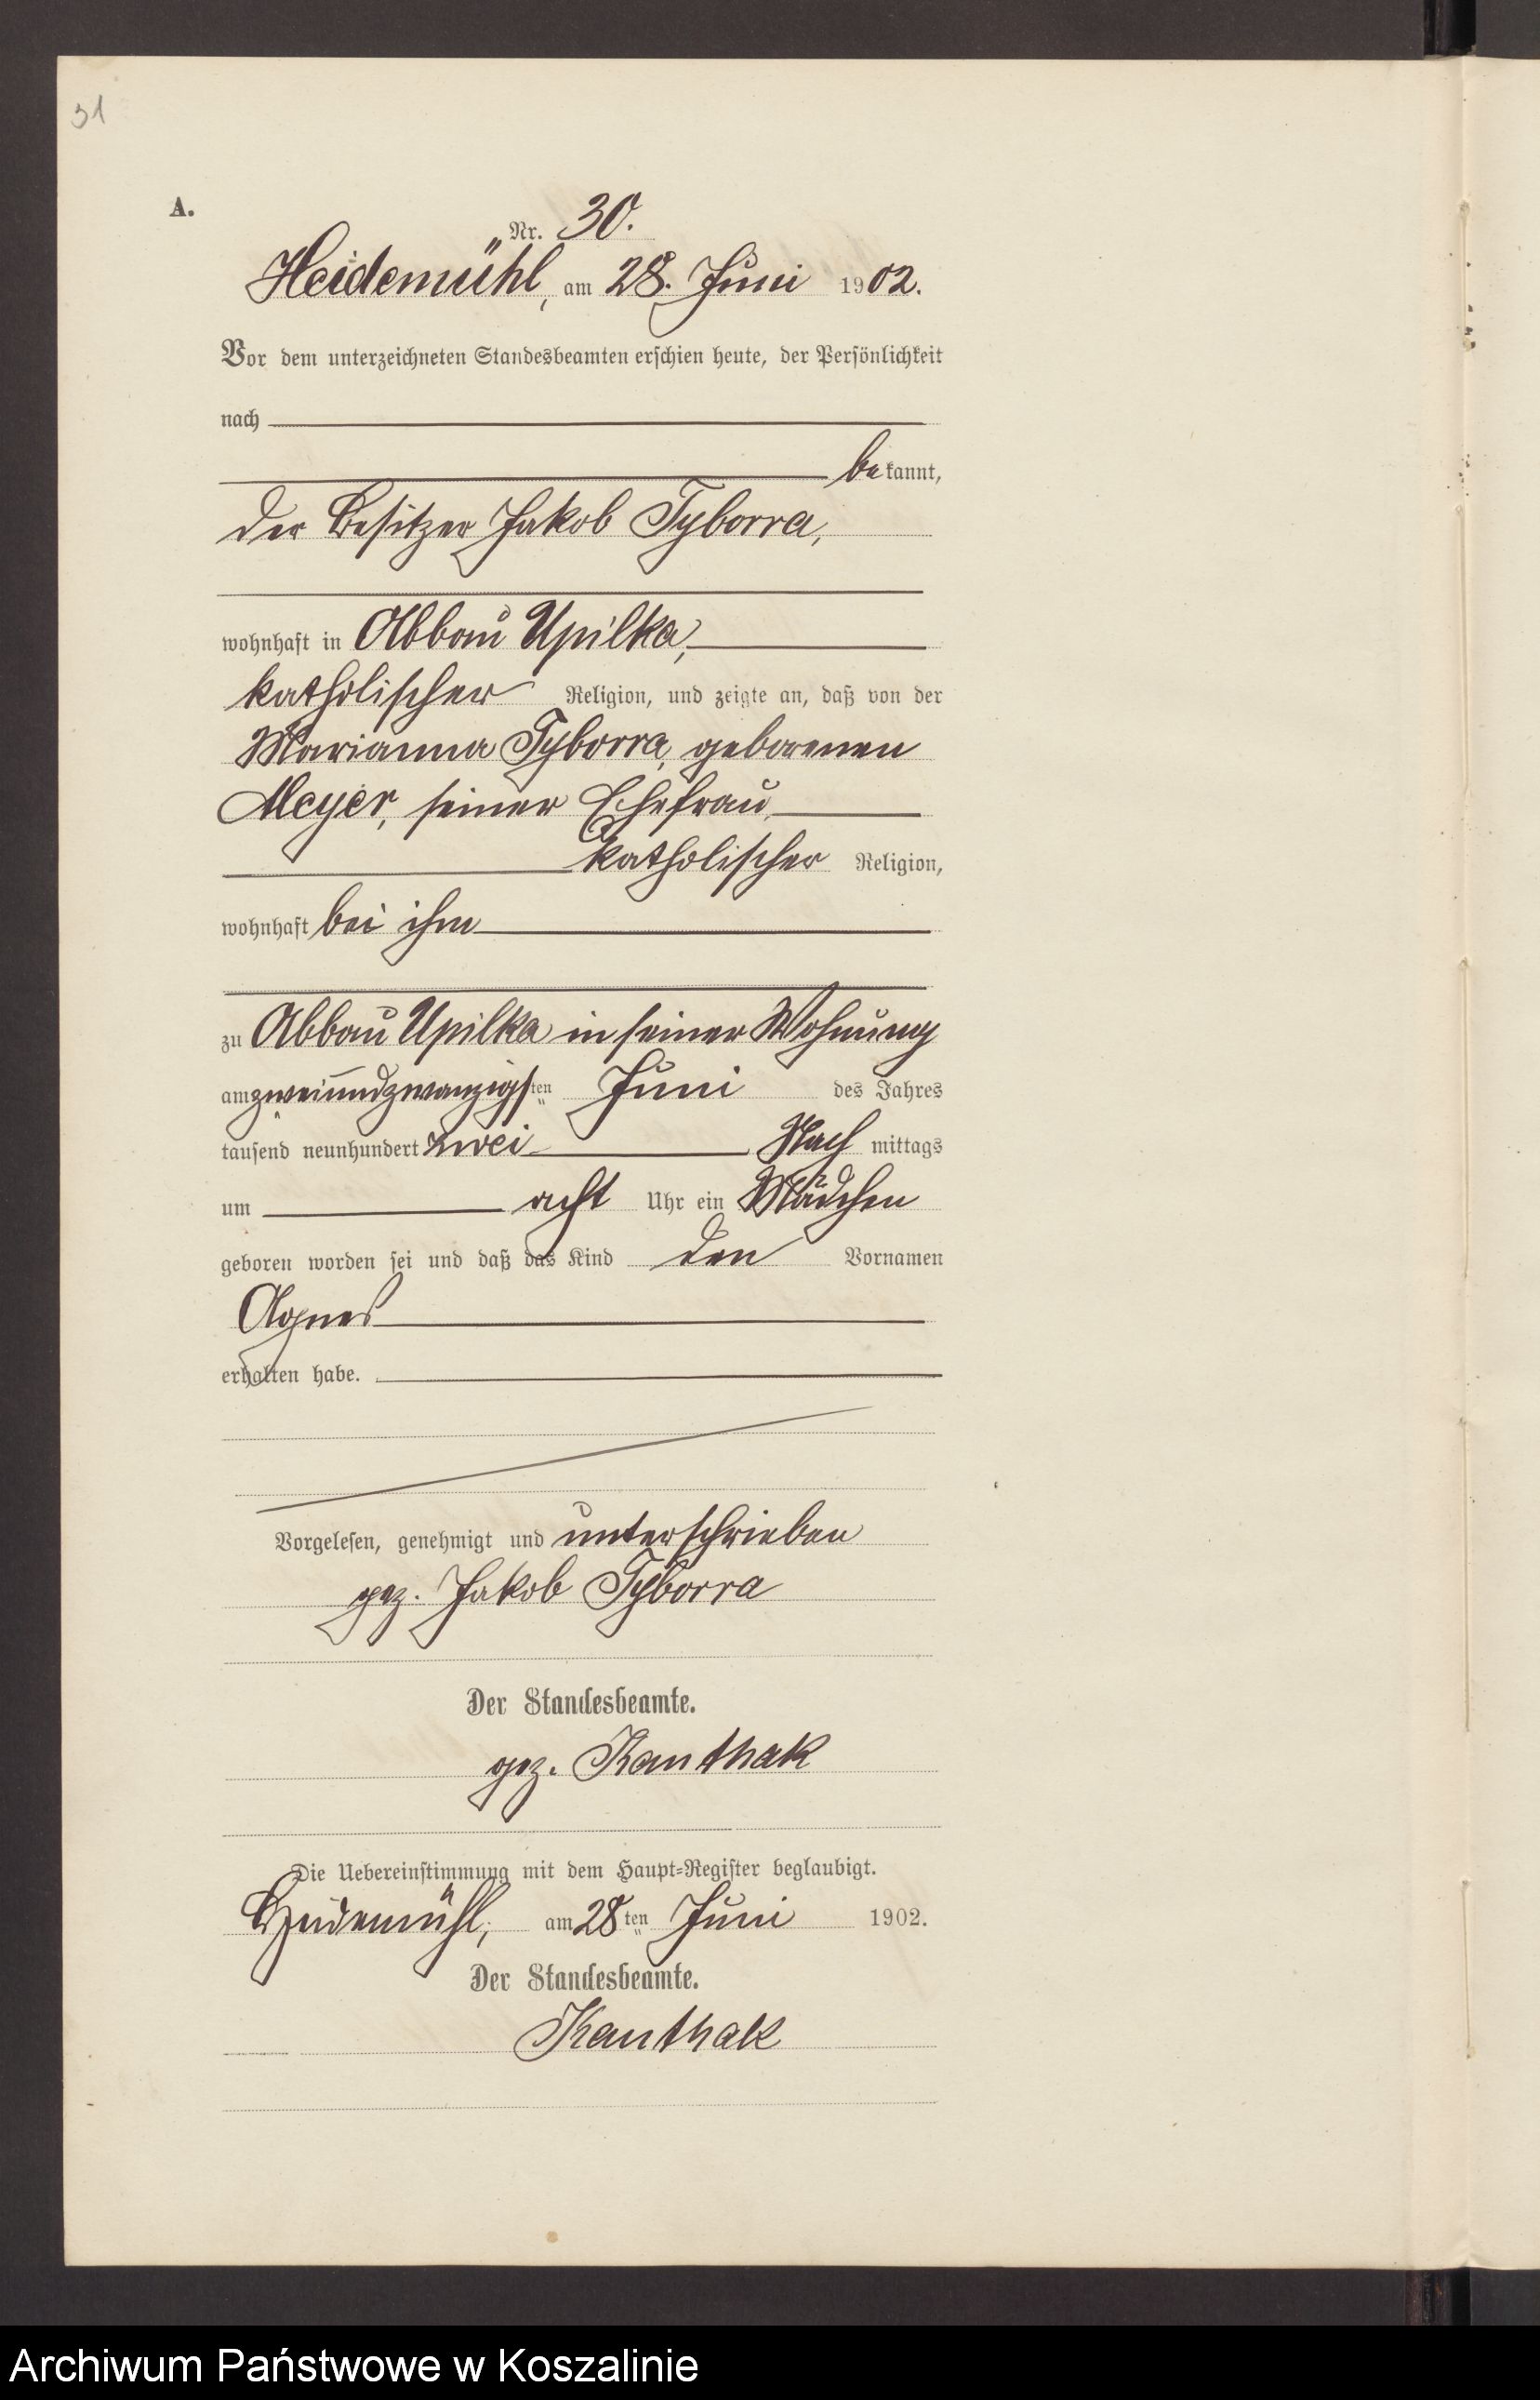 31
A.
Nr. 30.
Heidemühl, am 28. Juni 1902.
Vor dem unterzeichneten Standesbeamten erschien heute, der Persönlichkeit
nach
bekannt,
der Besitzer Jakob Tyborra,
wohnhaft in Abbau Upilka,
katholischer Religion, und zeigte an, daß von der
Marianna Tyborra, geborenen
Meyer, seiner Ehefrau,
katholischer Religion,
wohnhaft bei ihm
zu Abbau Upilka in seiner Wohnung
am zweiundzwanzigsten Juni des Jahres
tausend neunhundert zwei Nachmittags
um acht Uhr ein Mädchen
geboren worden sei und daß das Kind den Vornamen
Agnes
erhalten habe.
Vorgelesen, genehmigt und unterschrieben
gez. Jakob Tyborra
Der Standesbeamte.
gez. Kanthak
Die Uebereinstimmung mit dem Haupt-Register beglaubigt.
Heidemühl, am 28ten Juni 1902.
Der Standesbeamte.
Kanthak
Archiwum Państwowe w Koszalinie